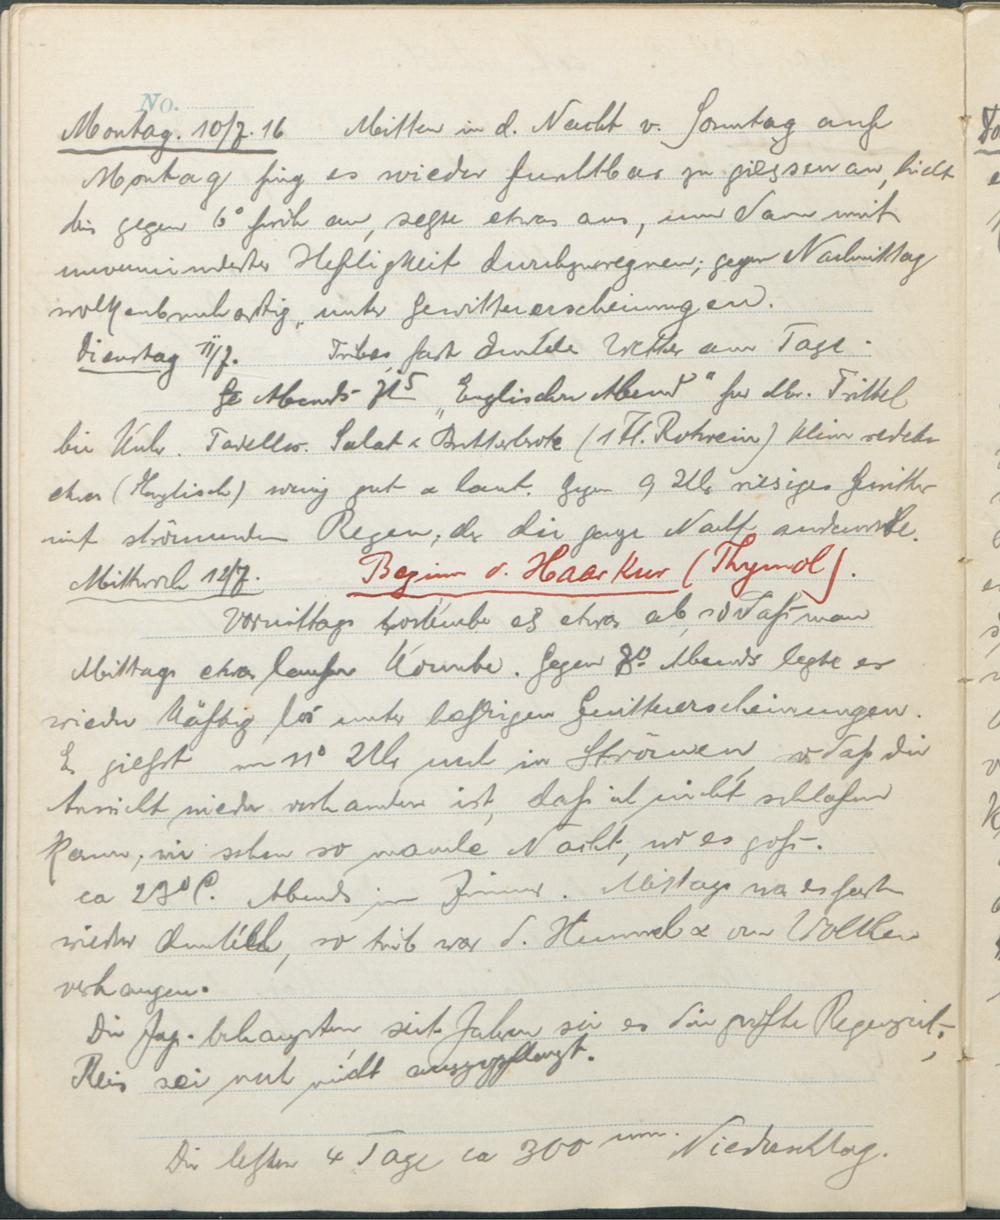 No.
Montag. 10/7. 16 Mitten in d. Nacht v. Sonntag auf
Montag fing es wieder furchtbar zu giessen an, hielt
bis gegen 6° früh an, setzte etwas aus, um dann mit
unverminderter Heftigkeit durchzuregnen; gegen Nachmittag
wolkenbruchartig, unter Gewittererscheinungen.
Dienstag 11/7. Trübes, fast dunkles Wetter am Tage.
Abends 7¹⁵ "Englischer Abend" für Mr. Trittel
bei Kuhr. Tadellos. Salat & Butterbrote (1 Fl. Rotwein) Klein redete
etwas (Englisch) wenig gut & laut. Gegen 9 Uhr riesiges Gewitter
mit strömenden Regen, der die ganze Nacht andauerte.
Mittwoch 12/7. Beginn d. Haarkur (Thymol).
Vormittags es etwas ab, sodaß man
Mittags etwas laufen konnte. Gegen 8° Abends legte es
wieder kräftig los unter heftigen Gewittererscheinungen.
Es giesst um 11° Uhr noch in Strömen, sodaß die
Aussicht wieder vorhanden ist, daß ich nicht schlafen
kann, wie schon so manche Nacht, wo es goß.
ca 23° C. Abends im Zimmer. Mittags war es fast
wieder dunkel, so trüb war d. Himmel & von Wolken
verhangen.
Die Jap. behaupten seit Jahren sei es die größte Regenzeit,
Reis sei noch nicht ausgepflanzt.
Die letzten 4 Tage ca 300 mm. Niederschlag.